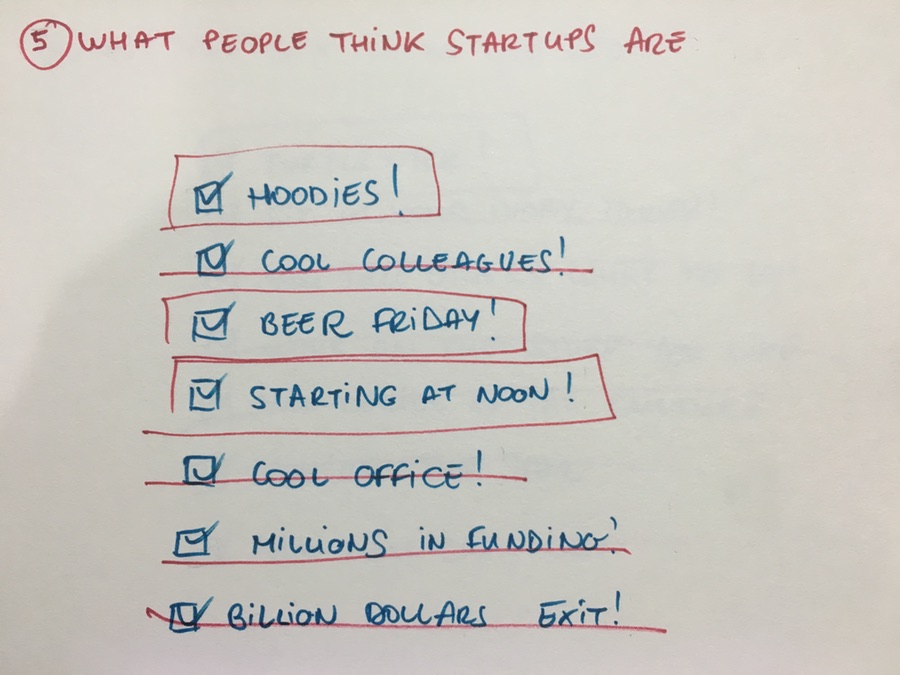 5 WHAT PEOPLE THINK STARTUPS ARE
HOODIES!
COOL COLLEAGUES!
BEER FRIDAY!
STARTING AT NOON!
COOL OFFICE!
MILLIONS IN FUNDING!
BILLION DOLLARS EXIT!